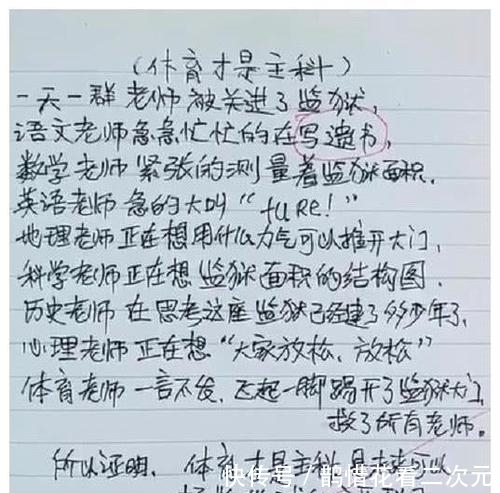 (体育才是主科)
一天一群老师被关进了监狱,
语文老师急急忙忙的在写遗书,
数学老师紧张的测量着监狱面积.
英语老师急的大叫"fure!"
地理老师正在想用什么力气可以推开大门,
科学老师正在想监狱面积的结构图.
历史老师在思考这座监狱已经建了多少年了,
心理老师正在想"大家放松、放松"
体育老师一言不发,飞起一脚踢开了监狱大门,
救了所有老师。
所以证明, 体育才是主科
快传号/鹊惜花看二次元